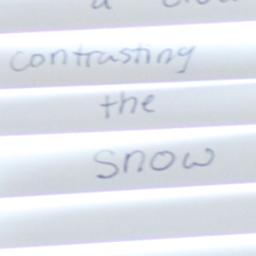 a
contrasting
the
snow